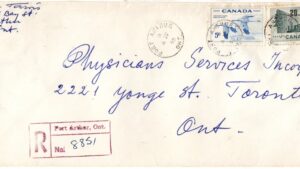 Bay St.
Ont.
PORT ARTHUR
CANADA
5¢
20
Physicians Services Inco
2221 Yonge St. Toront
Ont.
R
Port Arthur, Ont.
No: 8851